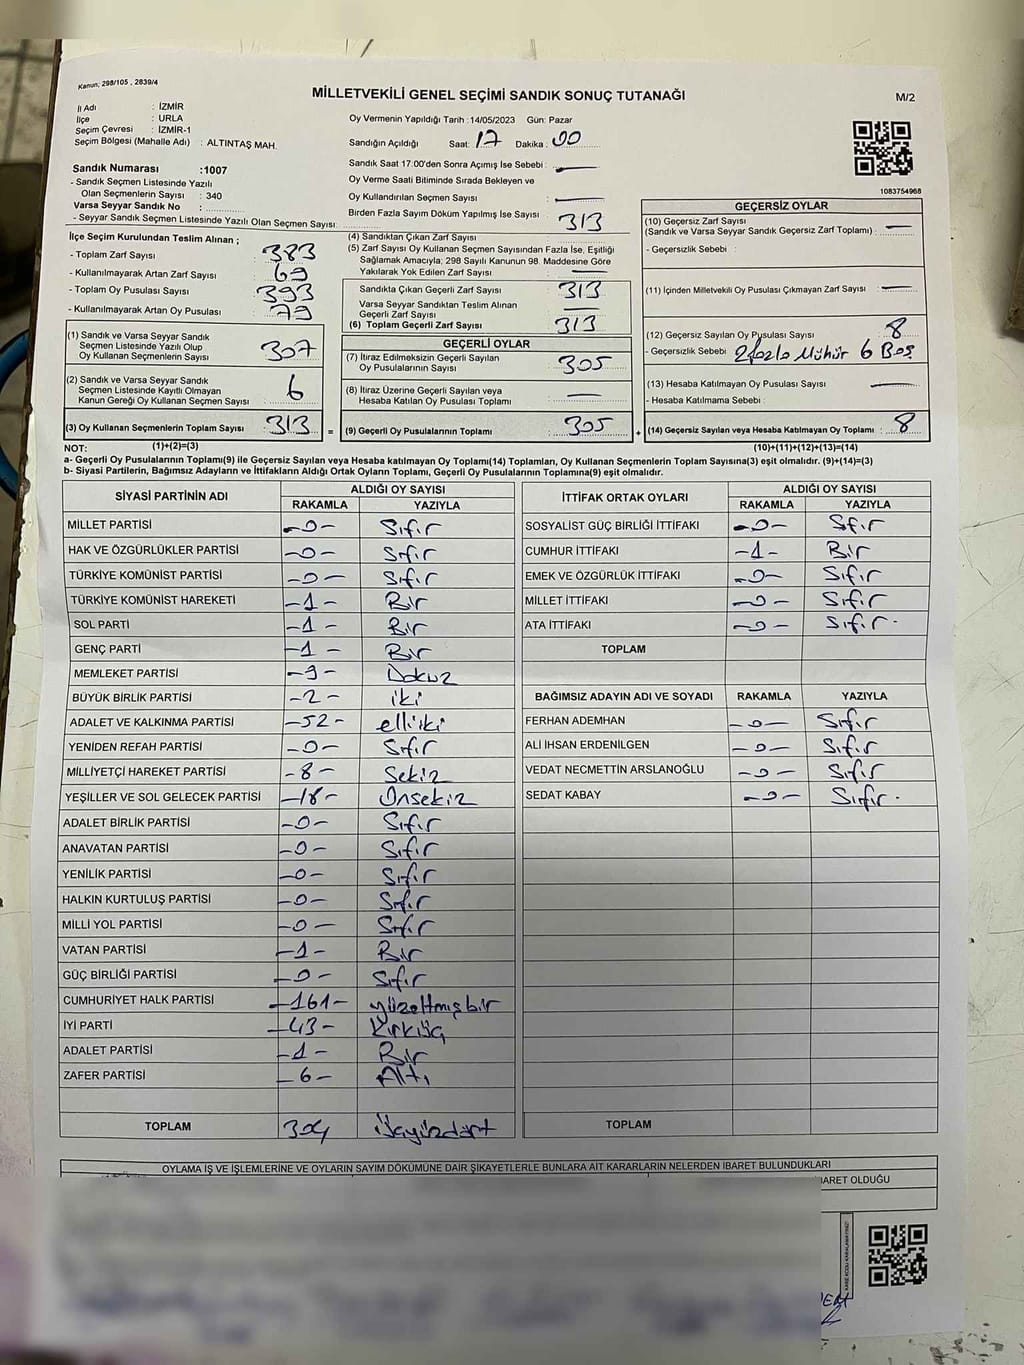 Kanun; 298/105 , 2839/4
MİLLETVEKİLİ GENEL SEÇİMİ SANDIK SONUÇ TUTANAĞI
M/2
İl Adı : İZMİR
İlçe : URLA
Seçim Çevresi : İZMİR-1
Seçim Bölgesi (Mahalle Adı) : ALTINTAŞ MAH.
Sandık Numarası :1007
- Sandık Seçmen Listesinde Yazılı
Olan Seçmenlerin Sayısı : 340
Varsa Seyyar Sandık No :
- Seyyar Sandık Seçmen Listesinde Yazılı Olan Seçmen Sayısı:
İlçe Seçim Kurulundan Teslim Alınan ;
- Toplam Zarf Sayısı : 383
- Kullanılmayarak Artan Zarf Sayısı : 69
- Toplam Oy Pusulası Sayısı : 393
- Kullanılmayarak Artan Oy Pusulası : 79
(1) Sandık ve Varsa Seyyar Sandık
Seçmen Listesinde Yazılı Olup
Oy Kullanan Seçmenlerin Sayısı : 307
(2) Sandık ve Varsa Seyyar Sandık
Seçmen Listesinde Kayıtlı Olmayan
Kanun Gereği Oy Kullanan Seçmen Sayısı : 6
(3) Oy Kullanan Seçmenlerin Toplam Sayısı : 313
(1)+(2)=(3)
Oy Vermenin Yapıldığı Tarih :14/05/2023 Gün: Pazar
Sandığın Açıldığı Saat: 17 Dakika : 00
Sandık Saat 17:00'den Sonra Açımış İse Sebebi : —
Oy Verme Saati Bitiminde Sırada Bekleyen ve
Oy Kullandırılan Seçmen Sayısı : —
Birden Fazla Sayım Döküm Yapılmış İse Sayısı :
(4) Sandıktan Çıkan Zarf Sayısı : 313
(5) Zarf Sayısı Oy Kullanan Seçmen Sayısından Fazla İse, Eşitliği
Sağlamak Amacıyla; 298 Sayılı Kanunun 98. Maddesine Göre
Yakılarak Yok Edilen Zarf Sayısı : —
Sandıkta Çıkan Geçerli Zarf Sayısı : 313
Varsa Seyyar Sandıktan Teslim Alınan
Geçerli Zarf Sayısı : —
(6) Toplam Geçerli Zarf Sayısı : 313
GEÇERLİ OYLAR
(7) İtiraz Edilmeksizin Geçerli Sayılan
Oy Pusulalarının Sayısı : 305
(8) İtiraz Üzerine Geçerli Sayılan veya
Hesaba Katılan Oy Pusulası Toplamı : —
= (9) Geçerli Oy Pusulalarının Toplamı : 305 +
1083754968
GEÇERSİZ OYLAR
(10) Geçersiz Zarf Sayısı
(Sandık ve Varsa Seyyar Sandık Geçersiz Zarf Toplamı) : —
- Geçersizlik Sebebi :
(11) İçinden Milletvekili Oy Pusulası Çıkmayan Zarf Sayısı : —
(12) Geçersiz Sayılan Oy Pusulası Sayısı : 8
- Geçersizlik Sebebi : 2 fazla Mühür 6 Boş
(13) Hesaba Katılmayan Oy Pusulası Sayısı : —
- Hesaba Katılmama Sebebi :
(14) Geçersiz Sayılan veya Hesaba Katılmayan Oy Toplamı : 8
(10)+(11)+(12)+(13)=(14)
NOT:
a- Geçerli Oy Pusulalarının Toplamı(9) ile Geçersiz Sayılan veya Hesaba katılmayan Oy Toplamı(14) Toplamları, Oy Kullanan Seçmenlerin Toplam Sayısına(3) eşit olmalıdır. (9)+(14)=(3)
b- Siyasi Partilerin, Bağımsız Adayların ve İttifakların Aldığı Ortak Oyların Toplamı, Geçerli Oy Pusulalarının Toplamına(9) eşit olmalıdır.
SİYASİ PARTİNİN ADI ALDIĞI OY SAYISI
RAKAMLA YAZIYLA
MİLLET PARTİSİ -0- Sıfır
HAK VE ÖZGÜRLÜKLER PARTİSİ -0- Sıfır
TÜRKİYE KOMÜNİST PARTİSİ -0- Sıfır
TÜRKİYE KOMÜNİST HAREKETİ -1- Bir
SOL PARTİ -1- Bir
GENÇ PARTİ -1- Bir
MEMLEKET PARTİSİ -9- Dokuz
BÜYÜK BİRLİK PARTİSİ -2- iki
ADALET VE KALKINMA PARTİSİ -52- elliiki
YENİDEN REFAH PARTİSİ -0- Sıfır
MİLLİYETÇİ HAREKET PARTİSİ -8- Sekiz
YEŞİLLER VE SOL GELECEK PARTİSİ -18- Onsekiz
ADALET BİRLİK PARTİSİ -0- Sıfır
ANAVATAN PARTİSİ -0- Sıfır
YENİLİK PARTİSİ -0- Sıfır
HALKIN KURTULUŞ PARTİSİ -0- Sıfır
MİLLİ YOL PARTİSİ -0- Sıfır
VATAN PARTİSİ -1- Bir
GÜÇ BİRLİĞİ PARTİSİ -0- Sıfır
CUMHURİYET HALK PARTİSİ -161- yüzeltmışbir
İYİ PARTİ -43- Kırküç
ADALET PARTİSİ -1- Bir
ZAFER PARTİSİ -6- Altı
TOPLAM 304 üçyüzdört
İTTİFAK ORTAK OYLARI ALDIĞI OY SAYISI
RAKAMLA YAZIYLA
SOSYALİST GÜÇ BİRLİĞİ İTTİFAKI -0- Sıfır
CUMHUR İTTİFAKI -1- Bir
EMEK VE ÖZGÜRLÜK İTTİFAKI -0- Sıfır
MİLLET İTTİFAKI -0- Sıfır
ATA İTTİFAKI -0- Sıfır.
TOPLAM
BAĞIMSIZ ADAYIN ADI VE SOYADI RAKAMLA YAZIYLA
FERHAN ADEMHAN -0- Sıfır
ALİ İHSAN ERDENİLGEN -0- Sıfır
VEDAT NECMETTİN ARSLANOĞLU -0- Sıfır
SEDAT KABAY -0- Sıfır.
TOPLAM
OYLAMA İŞ VE İŞLEMLERİNE VE OYLARIN SAYIM DÖKÜMÜNE DAİR ŞİKAYETLERLE BUNLARA AİT KARARLARIN NELERDEN İBARET BULUNDUKLARI
İBARET OLDUĞU